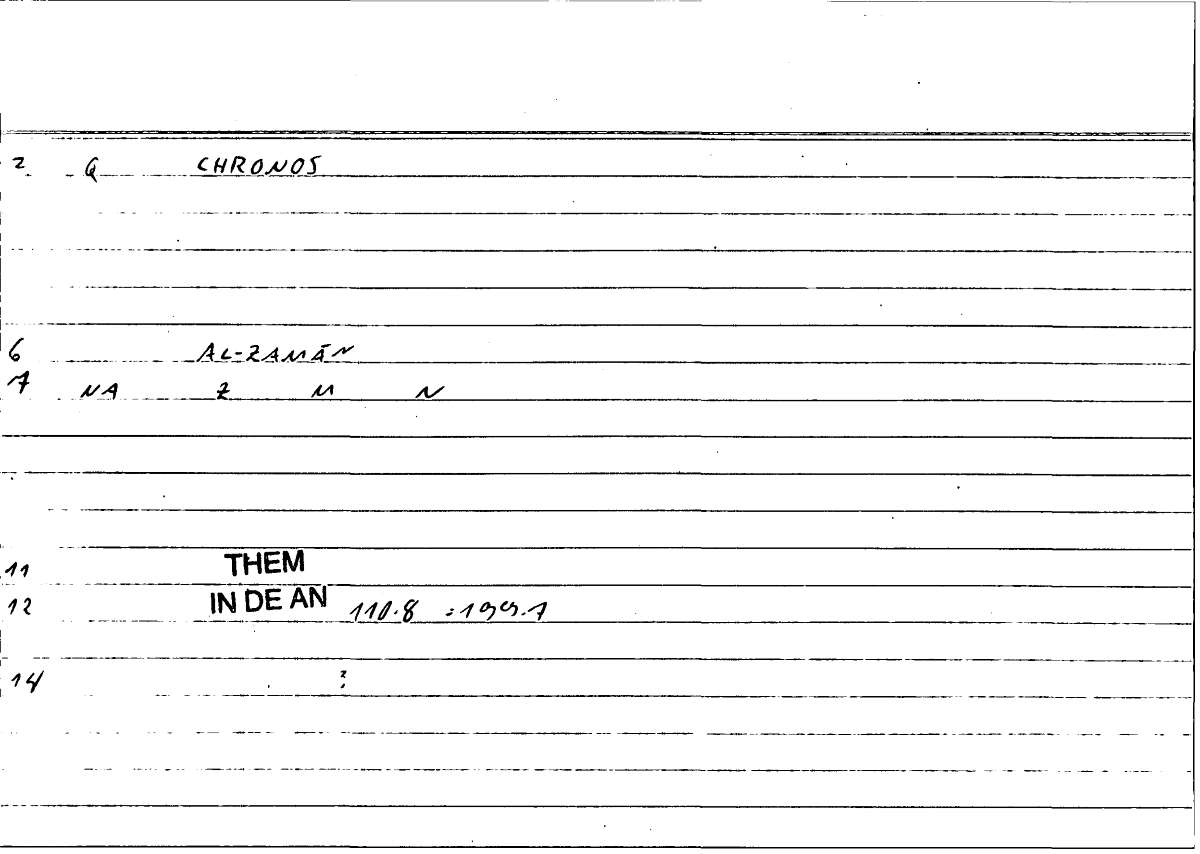 2 Q CHRONOS
6 AL-ZAMĀN
7 NA Z M N
11 THEM
12 IN DE AN 110.8 :199.7
14 ²;